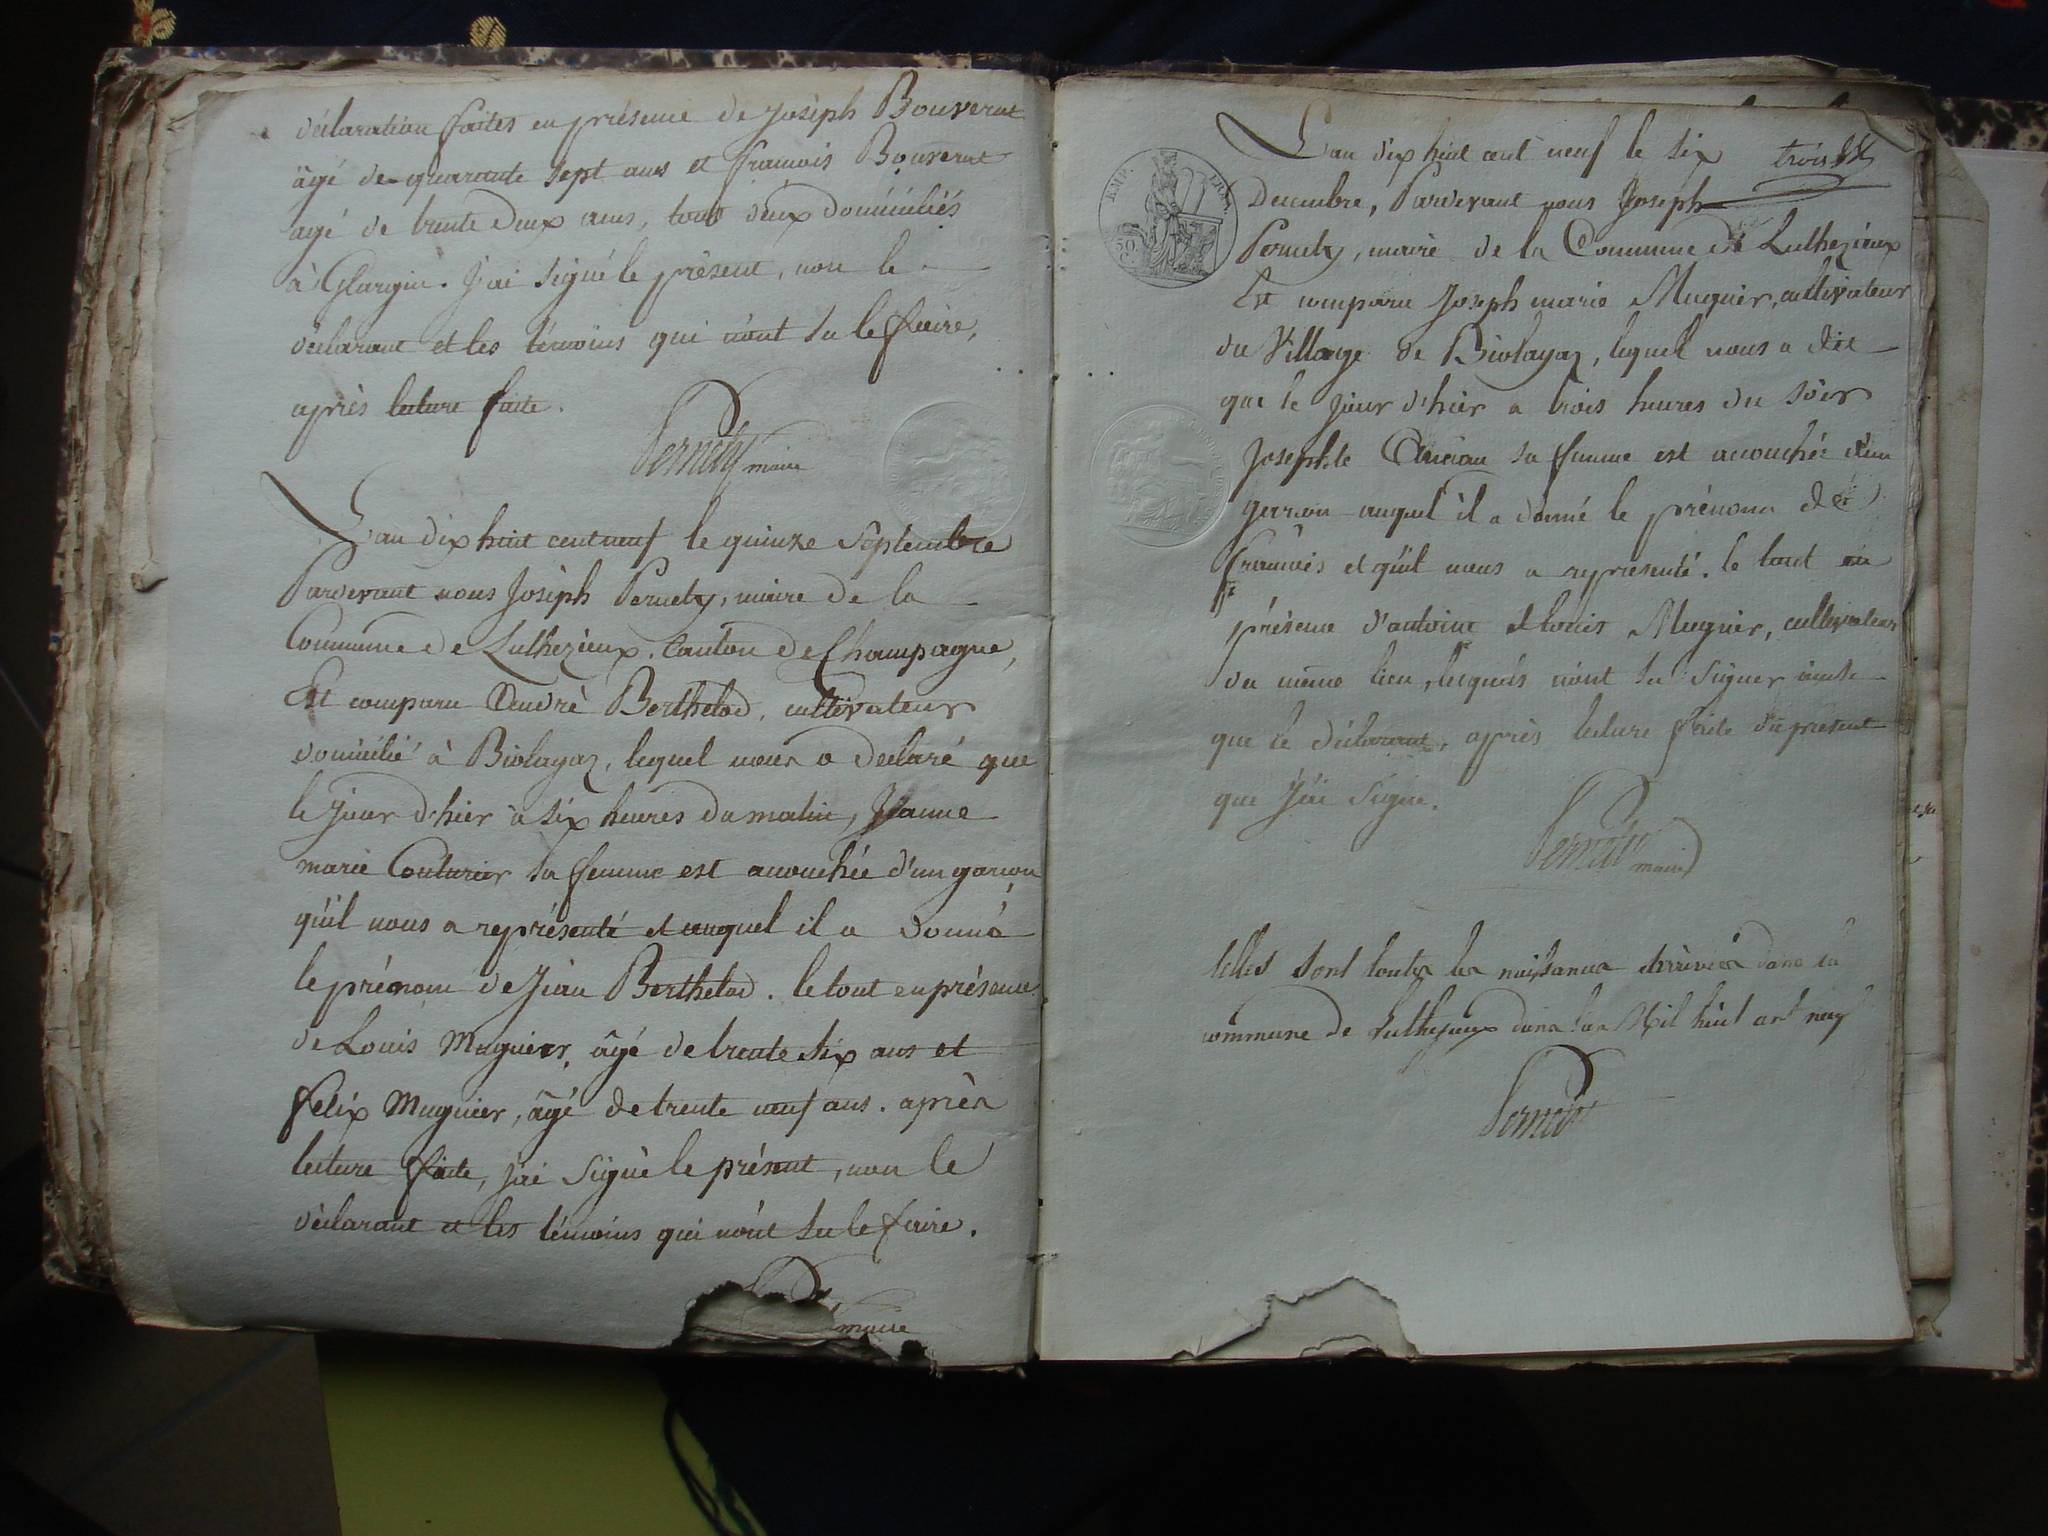 déclaration faites en présence de Joseph Bouverat
âgé de quarante sept ans et francois Bouverat
agé de trente deux ans, tous deux domiciliés
à Glargin. J'ai signé le présent, non le
déclarant et les témoins qui n'ont su le faire,
après lecture faite.
Pernety maire
L'an dix huit cent neuf le quinze Septembre
Pardevant nous Joseph Pernety, maire de la
Commune de Luthezieux, Canton de Champagne,
Est comparu André Berthelod, cultivateur
domicilié à Biolayaz, lequel nous a declaré que
le jour d'hier à six heures du matin, Jeanne
marie Couturier sa femme est acouchée d'un garcon
qu'il nous a représenté et auquel il a donné
le prénom de Jean Berthelod. le tout en présence
de Louis Muguier, âgé de trente six ans et
felix Muguier, âgé de trente neuf ans. après
lecture faite, j'ai signé le présent, non le
déclarant et les témoins qui n'ont su le faire.
maire
EMP. FRAN.
50 C.
trois
L'an dix huit cent neuf le six
Decembre, Pardevant nous Joseph
Pernety, maire de la Commune de Luthezieux
Est comparu Joseph marie Muguier, cultivateur
du Village de Biolayaz, lequel nous a dit
que le jour d'hier a trois heures du soir
Josephte Ancian sa femme est acouchée d'un
garcon auquel il a donné le prénom de
francois et qu'il nous a représenté. le tout en
présence d'antoine et louis Muguier, cultivateurs
du même lieu, lesquels n'ont su signer ainsi
que le déclarant, après lecture faite du présent
que j'ai signé.
Pernety maire
telles sont toutes les naissances arrivées dans la
commune de Luthezieux dans l'an Mil huit cent neuf
Pernety